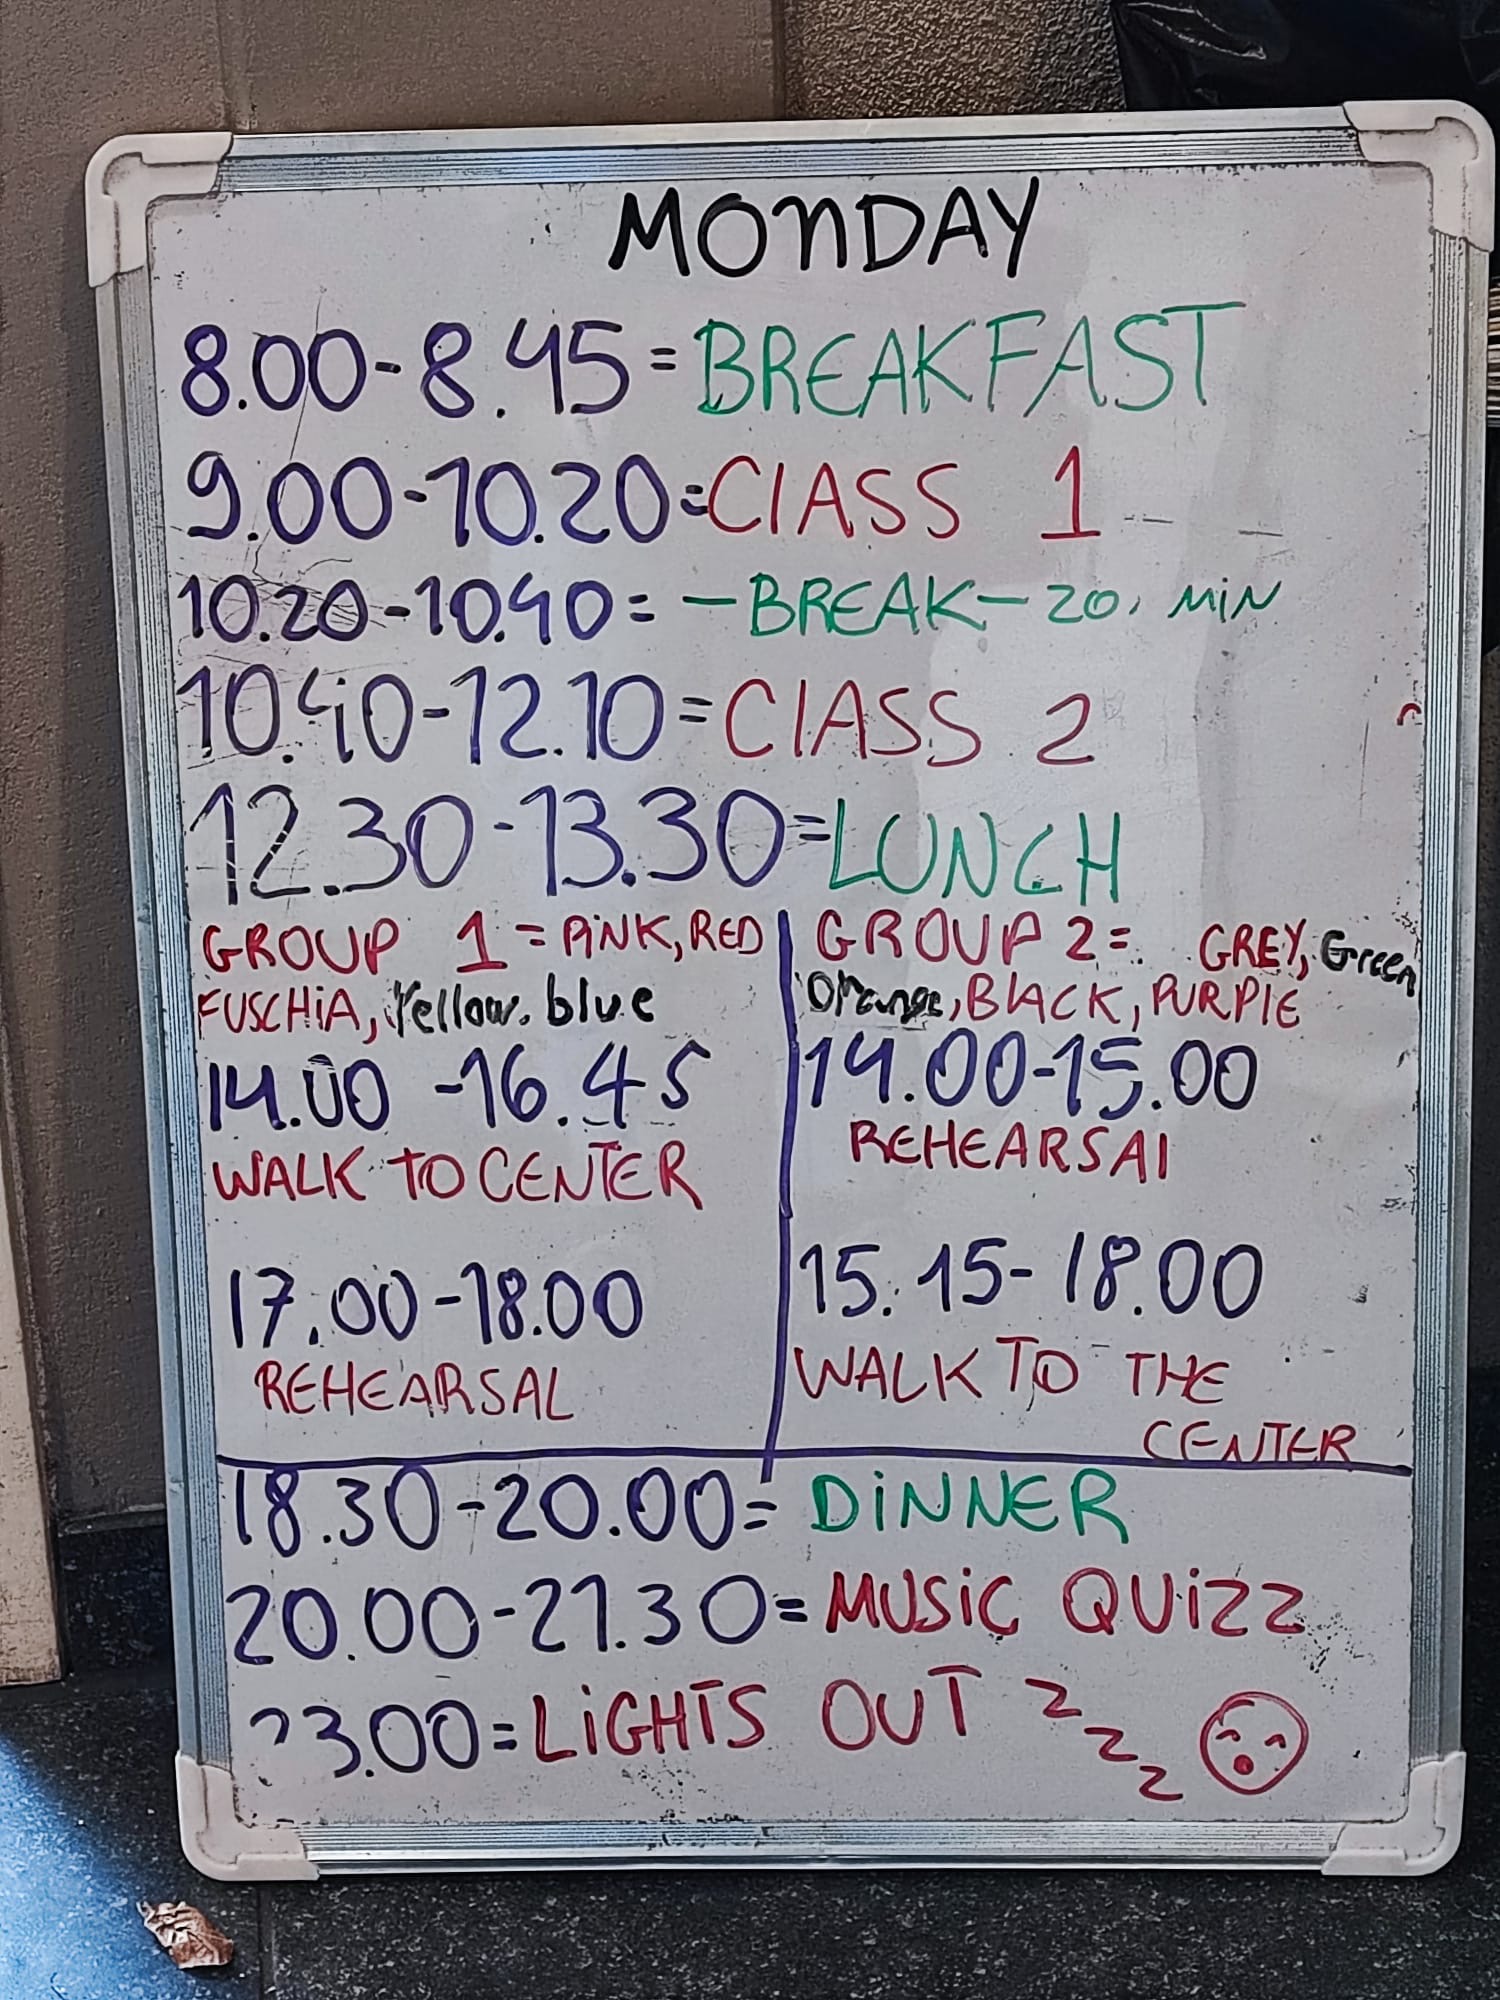 MONDAY
8.00-8.45=BREAKFAST
9.00-10.20=ClASS 1
10.20-10.40= -BREAK- 20. MiN
10.40-12.10=ClASS 2
12.30-13.30=LUNCH
GROUP 1 = PiNK, RED
FUSCHiA, Yellow. blue
14.00 -16.45
WALK TO CENTER
17.00-18.00
REHEARSAL
GROUP 2= GREY, Green
Orange, BlACK, PURPlE
14.00-15.00
REHEARSAl
15.15-18.00
WALK TO THE
CENTER
18.30-20.00= DiNNER
20.00-21.30= MUSiC QUiZZ
23.00=LiGHTS OUT z z z